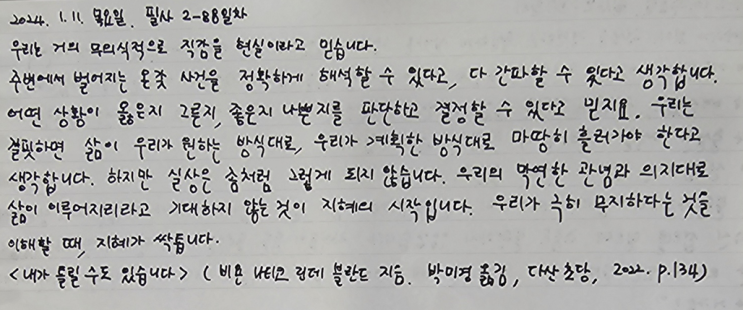 2024. 1. 11. 목요일. 필사 2-88일차
우리는 거의 무의식적으로 직감을 현실이라고 믿습니다.
주변에서 벌어지는 온갖 사건을 정확하게 해석할 수 있다고, 다 간파할 수 있다고 생각합니다.
어떤 상황이 옳은지 그른지, 좋은지 나쁜지를 판단하고 결정할 수 있다고 믿지요. 우리는
걸핏하면 삶이 우리가 원하는 방식대로, 우리가 계획한 방식대로 마땅히 흘러가야 한다고
생각합니다. 하지만 실상은 좀처럼 그렇게 되지 않습니다. 우리의 막연한 관념과 의지대로
삶이 이루어지리라고 기대하지 않는 것이 지혜의 시작입니다. 우리가 극히 무지하다는 것을
이해할 때, 지혜가 싹틉니다.
<내가 틀릴 수도 있습니다> (비욘 나티코 린데블란드 지음. 박미경 옮김, 다산초당, 2022. p.134)